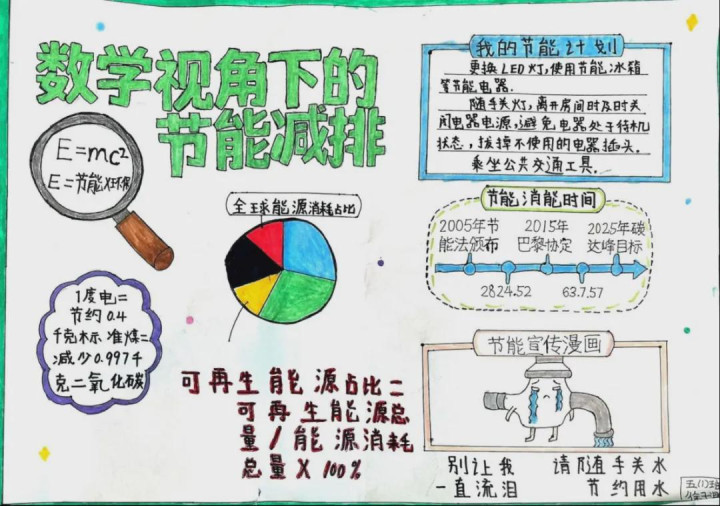 数学视角下的
节能减排
E=mc²
E=节能×环保
1度电=
节约0.4
千克标准煤=
减少0.997千
克二氧化碳
全球能源消耗占比
可再生能源占比=
可再生能源总
量/能源消耗
总量×100%
我的节能计划
更换LED灯,使用节能冰箱
等节能电器.
随手关灯,离开房间时及时关
闭电器电源,避免电器处于待机
状态,拔掉不使用的电器插头.
乘坐公共交通工具.
节能消能时间
2005年节
能法颁布
2015年
巴黎协定
2025年碳
达峰目标
2824.52
63.7.57
节能宣传漫画
别让我
一直流泪
请随手关水
节约用水
五(1)班